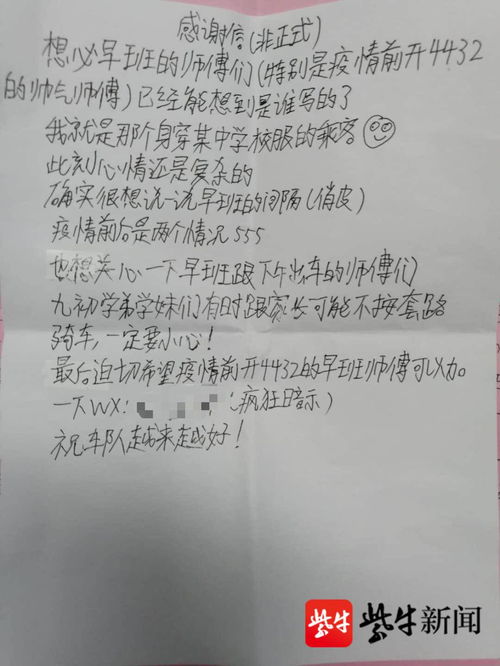 感谢信(非正式)
想必早班的师傅们(特别是疫情前开4432
的帅气师傅)已经能想到是谁写的了
我就是那个身穿某中学校服的乘客
此刻心情还是复杂的
确实很想说一说早班的间隔(俏皮)
疫情前后是两个情况555
也想关心一下早班跟下午出车的师傅们
九初学弟学妹们有时跟家长可能不按套路
骑车,一定要小心!
最后迫切希望疫情前开4432的早班师傅可以加
一下WX: (疯狂暗示)
祝车队越来越好!
紫牛 紫牛新闻